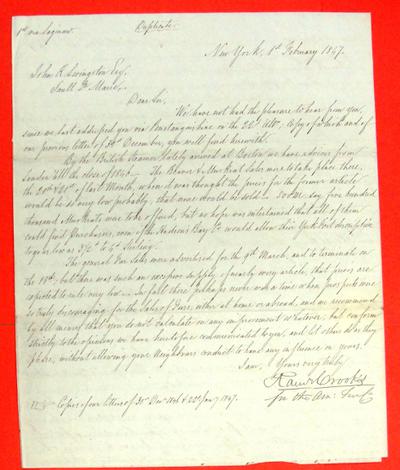 1st via Saginaw.
Duplicate.
New York, 1st February 1847.
John R. Livingston Esq.
Sault Ste Marie.
Dear Sir,
We have not had the pleasure to hear from you,
since we last addressed you via Penetanguishine on the 22d Ulto; Copy of which and of
our previous letter of 31st December, you will find herewith.
By the British Steamer lately arrived at Boston we have advices from
London till the close of 1846. The Beaver & Musk rat Sales were to take place there,
the 20th & 21st of last Month, when it was thought the prices for the former article
would be so very low probably, that none would be sold. Say five hundred
thousand Musk rats were to be offered, but no hope was entertained that all of them
could find Purchasers, even if the Hudson's Bay Co. would allow their York Fort description
to go as low as 3½ to 4d Sterling.
The general Fur Sales were advertised for the 9th March, and to terminate on
the 19th; but there was such an excessive supply of nearly every article, that prices are
expected to rule very low. In fact there perhaps never was a time when prospects were
so truly discouraging for the sales of Furs, either at home or abroad, and we recommend
by all means that you do not calculate on any improvement whatever, but conform
strictly to the opinions we have heretofore communicated to you, and let others do as they
please, without allowing your Neighbours conduct to have any influence on yours.
I am, Yours very truly
Ramsay Crooks
for the Am: Fur Co
Copies of our letters of 31 Decr 1846 & 22 Jany 1847.